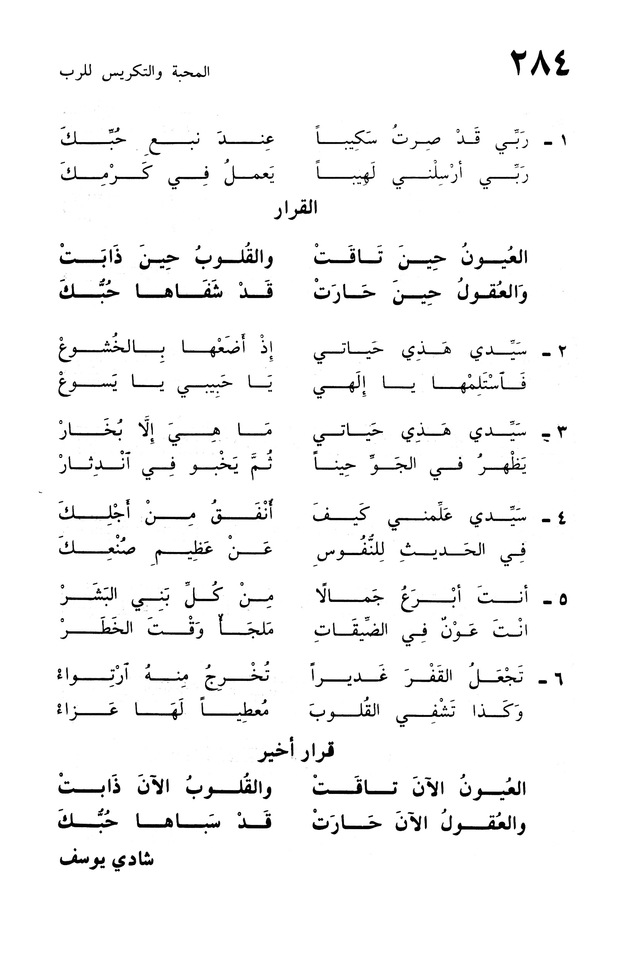 ٢٨٤
المحبة والتكريس للرب
١ - رَبِّي قَدْ صِرتُ سَكِيباً عِندَ نبعِ حُبِّكَ
رَبِّي أرْسِلْني لَهِيباً يَعملُ فِي كَرْمِكَ
القرار
العُيونُ حِينَ تَاقَتْ والقُلوبُ حِينَ ذَابَتْ
وَالعُقولُ حِينَ حَارَتْ قَدْ شَفَاها حُبُّكَ
٢ - سَيِّدي هَذي حَياتي إذْ أضَعْها بِالخُشوعْ
فَٱسْتَلِمْها يا إِلَهي يَا حَبيبي يا يَسوعْ
٣ - سَيِّدي هَذي حَياتي مَا هِيَ إلَّا بُخَارْ
يَظْهرُ في الجَوِّ حِيناً ثُمَّ يَخْبو فِي ٱنْدِثارْ
٤ - سَيِّدي عَلِّمني كَيفَ أُنْفَقُ مِنْ أَجْلِكَ
فِي الحَديثِ لِلنُّفُوسِ عَنْ عَظِيمِ صُنْعِكَ
٥ - أنتَ أبْرَعُ جَمالًا مِنْ كُلِّ بَنِي البَشَرْ
انْتَ عَوْنٌ فِي الضِّيقَاتِ مَلجَأٌ وَقْتَ الخَطَرْ
٦ - تَجْعَلُ القَفْرَ غَديراً تُخْرِجُ مِنهُ ٱرْتِواءْ
وَكَذا تَشْفِي القُلوبَ مُعطِياً لَهَا عَزاءْ
قرار أخير
العُيونُ الآنَ تاقَتْ والقُلوبُ الآنَ ذَابتْ
والعُقولُ الآنَ حَارَتْ قَدْ سَبَاها حُبُّكَ
شادي يوسف